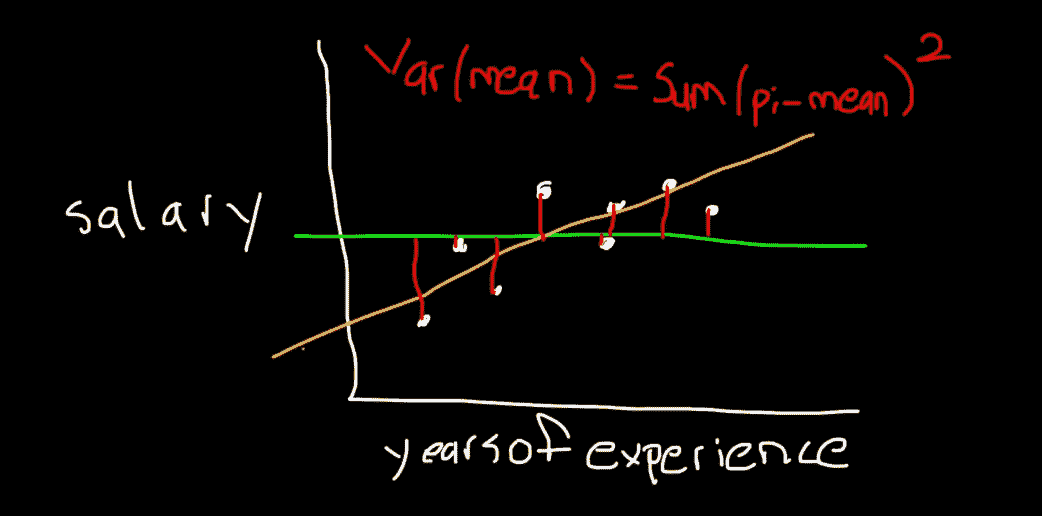 Var(mean) = Sum(pi-mean)²
salary
years of experience